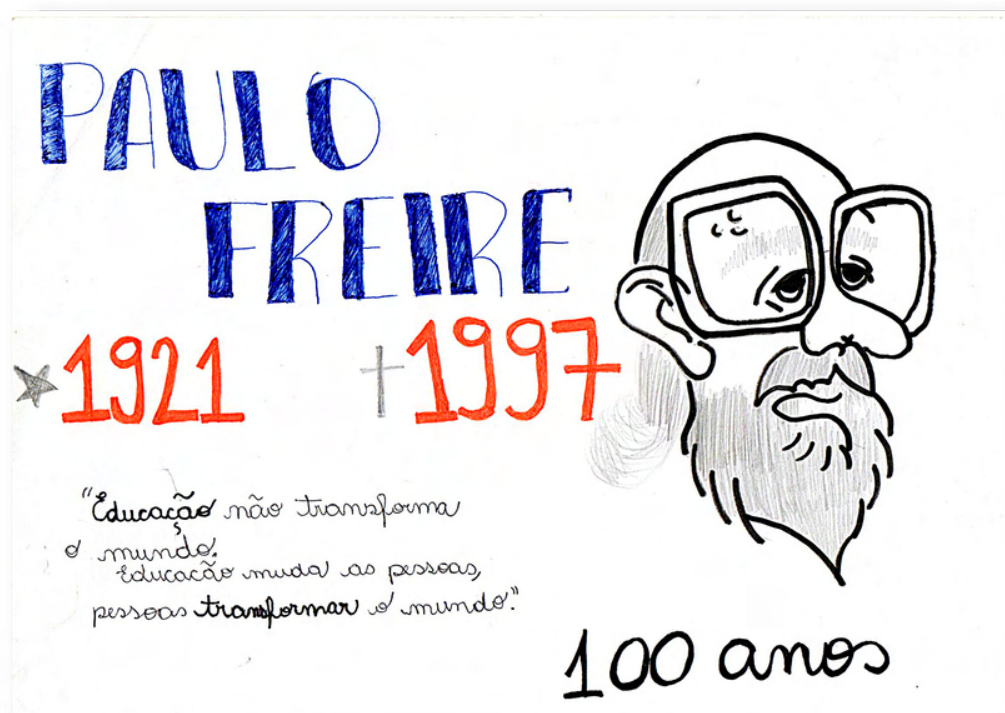 PAULO
FREIRE
1921 1997
"Educação não transforma
o mundo.
Educação muda as pessoas,
pessoas transformar o mundo."
100 anos